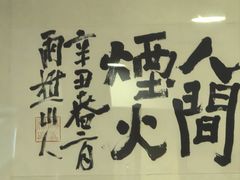 人間
煙火
辛丑春二月
山人